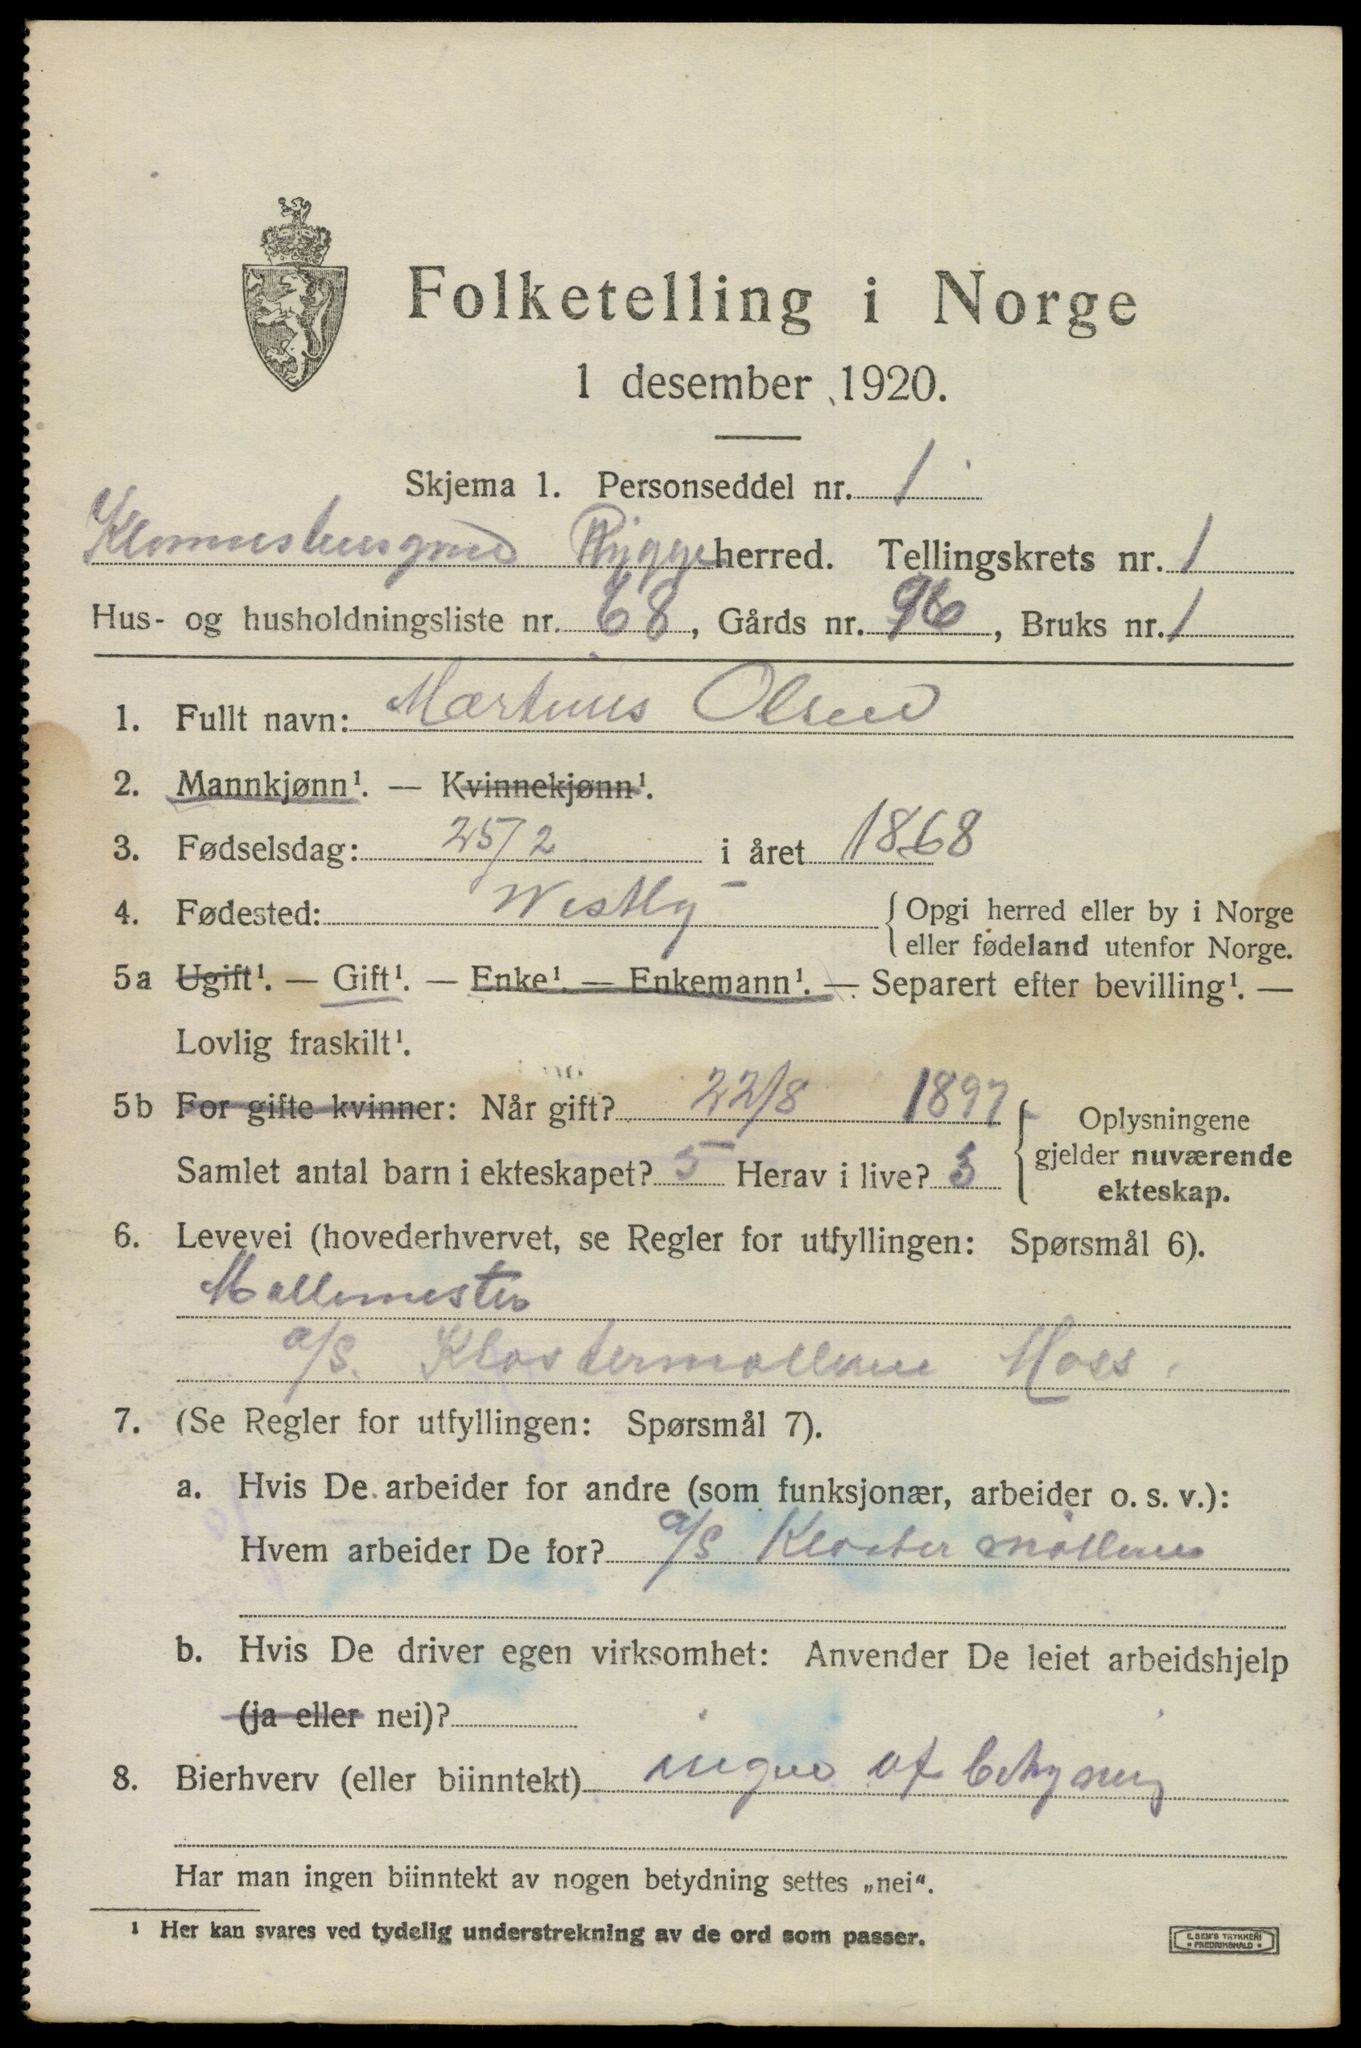 Folketelling i Norge
1 desember 1920.
Skjema 1. Personseddel nr. 1
Rygge herred. Tellingskrets nr. 1
Hus- og husholdningsliste nr. 68, Gårds nr. 96, Bruks nr. 1
1. Fullt navn: Martinius Olsen
2. Mannkjønn¹. — Kvinnekjønn¹.
3. Fødselsdag: 25/2 i året 1868
4. Fødested: Westby { Opgi herred eller by i Norge
eller fødeland utenfor Norge.
5a Ugift¹. — Gift¹. — Enke¹. — Enkemann¹. — Separert efter bevilling¹. —
Lovlig fraskilt¹.
5b For gifte kvinner: Når gift? 22/8 1897 { Oplysningene
gjelder nuværende
ekteskap.
Samlet antal barn i ekteskapet? 5 Herav i live? 5
6. Levevei (hovederhvervet, se Regler for utfyllingen: Spørsmål 6).
Møllemester
a/s. Klostermøllene Moss.
7. (Se Regler for utfyllingen: Spørsmål 7).
a. Hvis De arbeider for andre (som funksjonær, arbeider o. s. v.):
Hvem arbeider De for? a/s Kloster møllene
b. Hvis De driver egen virksomhet: Anvender De leiet arbeidshjelp
(ja eller nei)?
8. Bierhverv (eller biinntekt) ingen af betydning
Har man ingen biinntekt av nogen betydning settes „nei“.
¹ Her kan svares ved tydelig understrekning av de ord som passer.
E. SEM'S TRYKKERI
• FREDRIKSHALD •